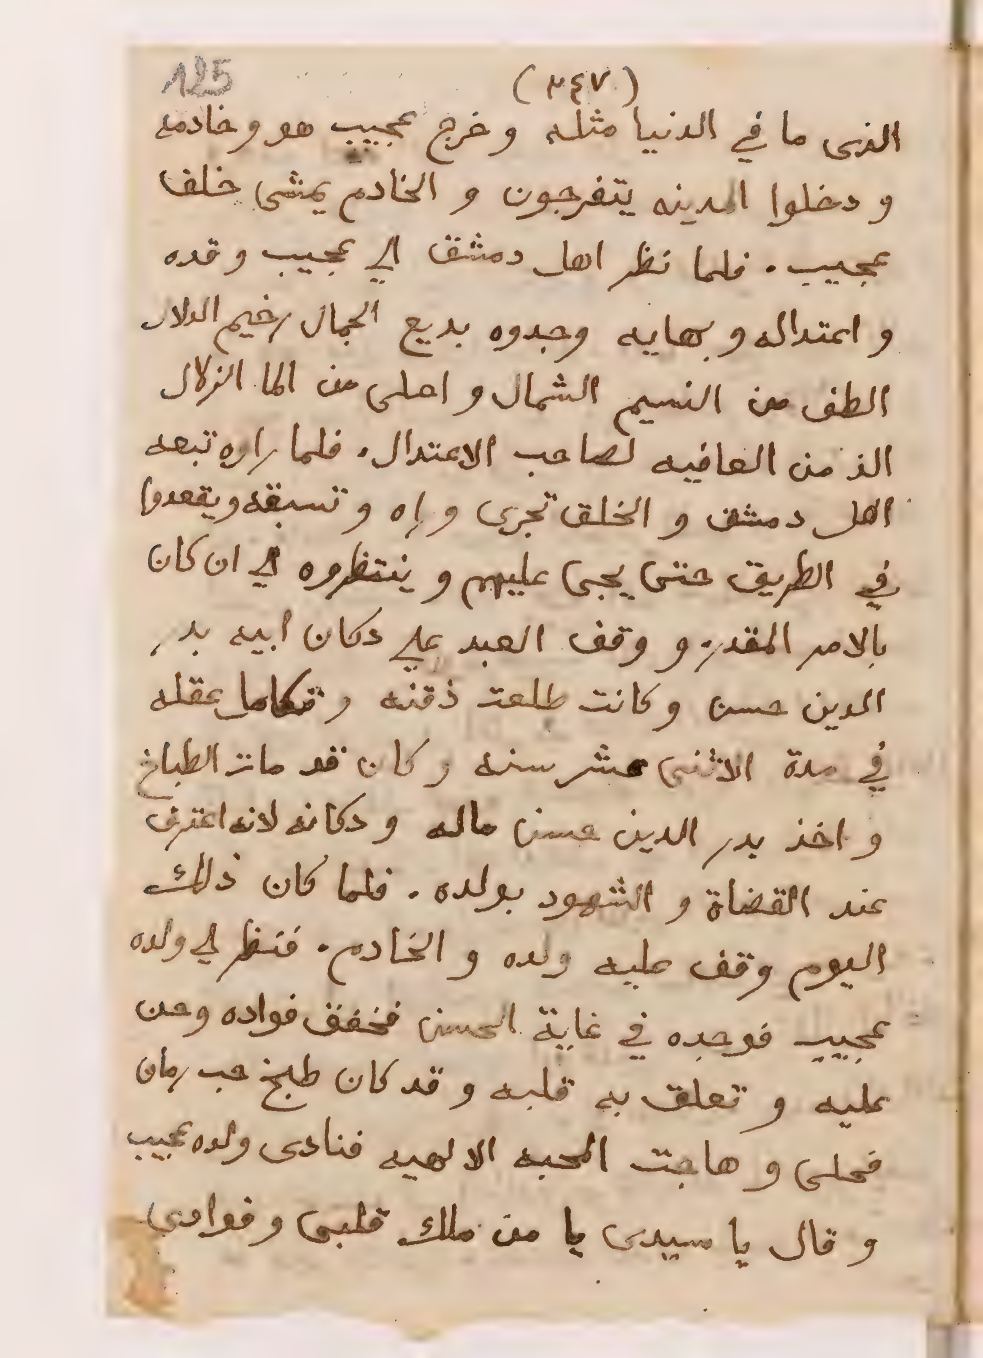 125
(٣٤٧)
الذى ما في الدنيا مثله و خرج عجيب هو و خادمه
و دخلوا المدينه يتفرجون و الخادم يمشى خلف
عجيب . فلما نظر اهل دمشق الي عجيب و قده
و اعتداله و بهايه وجدوه بديع الجمال رخيم الدلال
الطف من النسيم الشمال و احلى من الما الزلال
الذ من العافيه لصاحب الاعتدال . فلما راوه تبعه
اهل دمشق و الخلق تجرى و راه و تسبقه و يقعدوا
في الطريق حتى يجى عليهم و ينتظروه الي ان كان
بالامر المقدر و وقف العبد علي دكان ابيه بدر
الدين حسن و كانت طلعت ذقنه و تكامل عقله
في مدة الاثنى عشر سنه و كان قد مات الطباخ
و اخذ بدر الدين حسن ماله و دكانه لانه اعترف
عند القضاة و الشهود بولده . فلما كان ذلك
اليوم وقف عليه ولده و الخادم . فنظر الي ولده
عجيب فوجده في غاية الحسن فخفق فواده وحن
عليه و تعلق به قلبه و قد كان طبخ حب رمان
فحلى و هاجت المحبه الالهيه فنادى ولده عجيب
و قال يا سيدى يا من ملك قلبى و فوادى